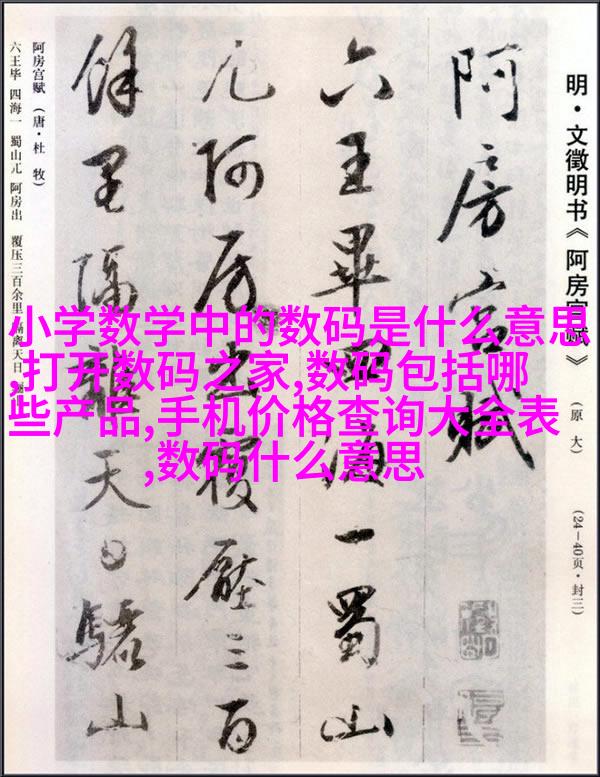 明·文徵明书《阿房宫赋》（原大）（24—40页·封三）
阿房宫賦
六王畢四海一蜀山
兀阿房出覆壓三百
餘里隔離天日驪山
阿房宫赋（唐·杜 牧）
六王毕 四海一 蜀山兀 阿房出 覆压三百余里 隔离天日
小学数学中的数码是什么意思
,打开数码之家,数码包括哪
些产品,手机价格查询大全表
,数码什么意思